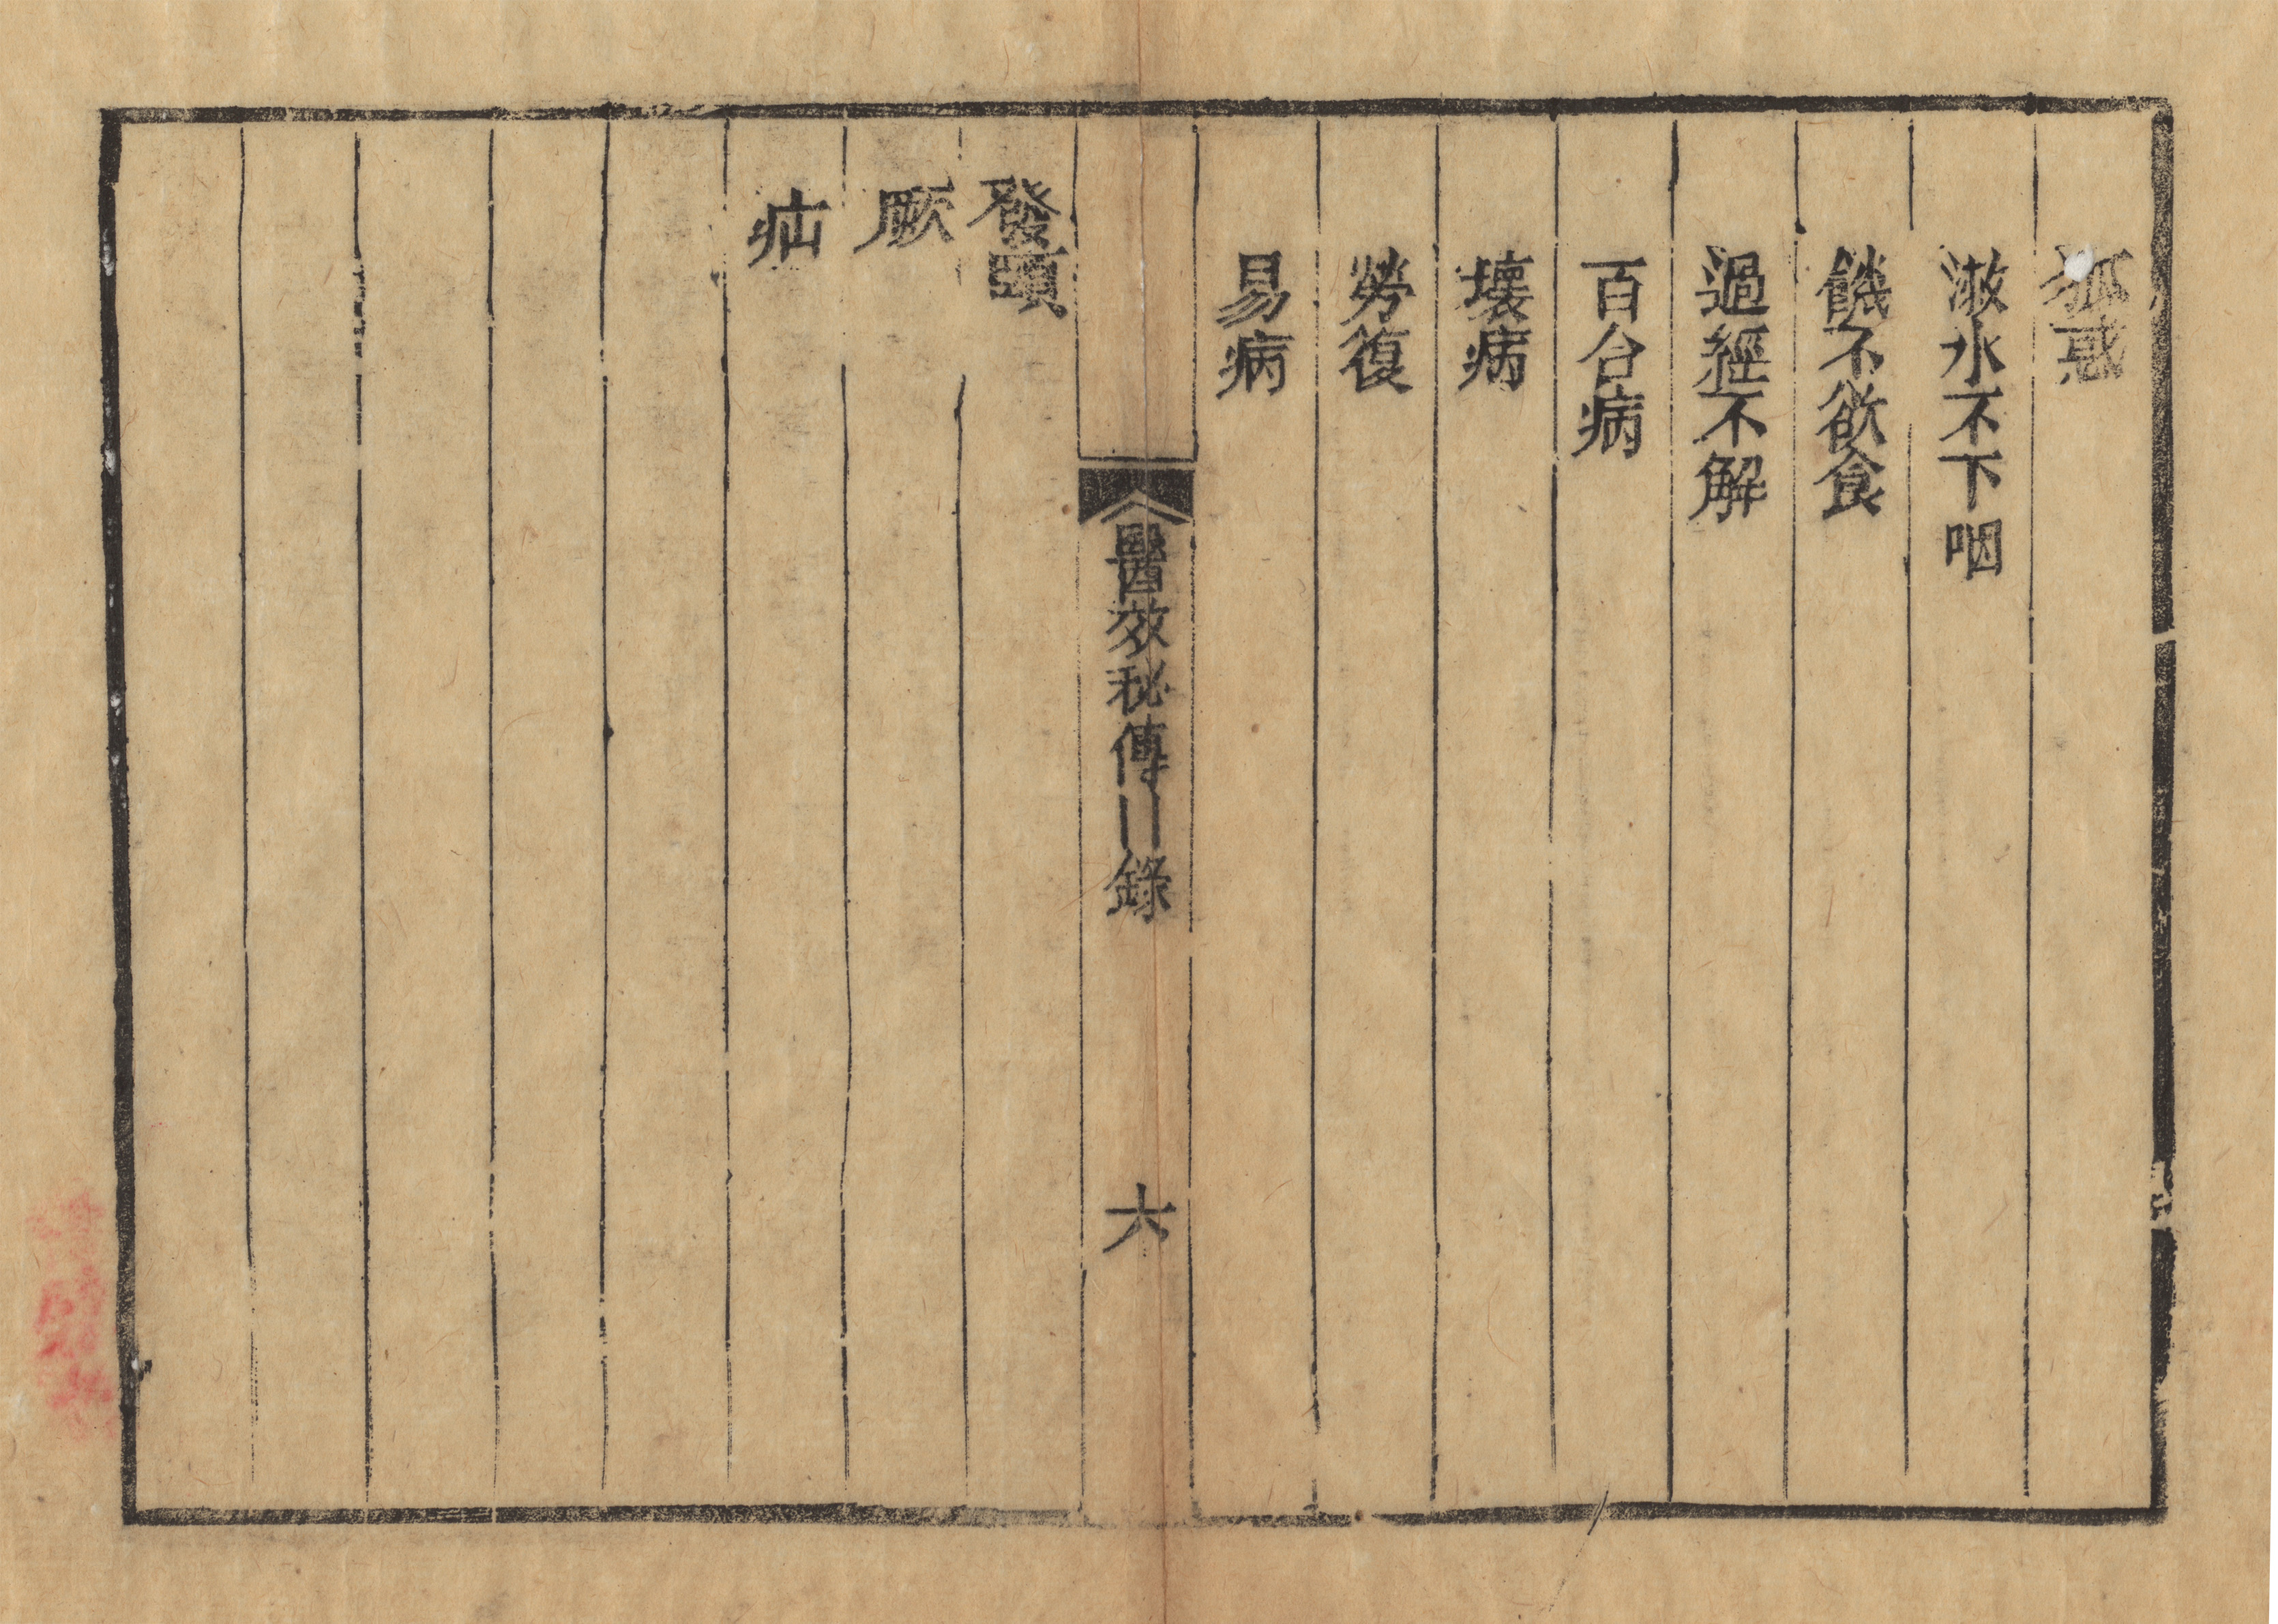 狐惑
漱水不下咽
饑不欲食
過經不解
百合病
壞病
勞復
易病
醫效秘傳目錄
六
發頤
厥
疝